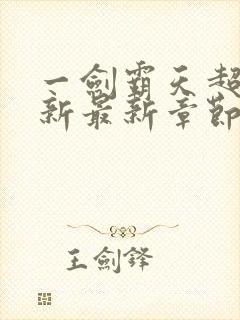 一劍霸天超
新最新章節
王劍鋒